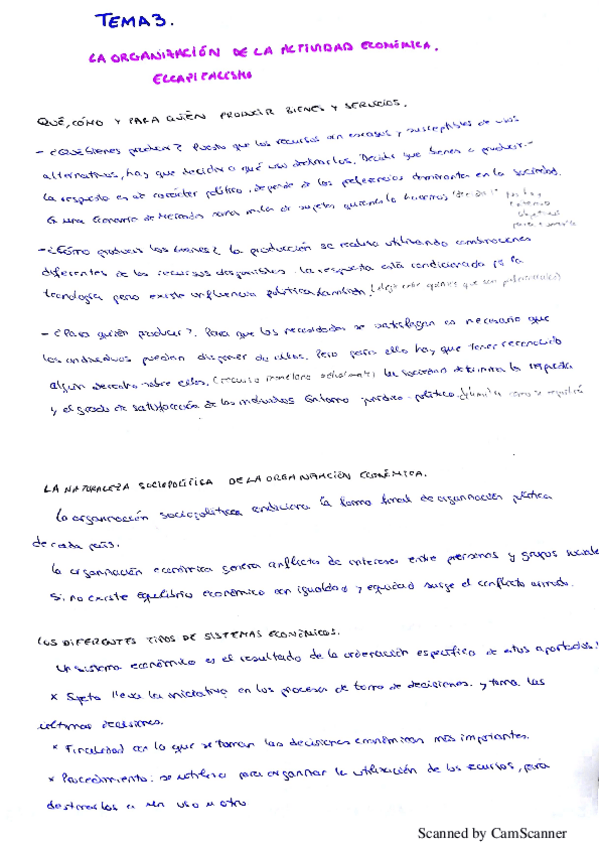 TEMA 3.
LA ORGANIZACIÓN DE LA ACTIVIDAD ECONÓMICA.
EL CAPITALISMO
QUÉ, CÓMO Y PARA QUIÉN PRODUCIR BIENES Y SERVICIOS.
- ¿Qué bienes producir? Puesto que los recursos son escasos y susceptibles de usos
alternativos, hay que decidir a qué uso destinarlos. Decidir que bienes a producir.
La respuesta es de carácter político, depende de las preferencias dominantes en la sociedad.
En una Economía de Mercado serán miles de sujetos quienes lo
- ¿Cómo producir los bienes? La producción se realiza utilizando combinaciones
diferentes de los recursos disponibles. La respuesta está condicionada por la
tecnología pero existe influencia política también.
- ¿Para quién producir?. Para que las necesidades se satisfagan es necesario que
los individuos puedan disponer de ellos. Pero para ello hay que tener reconocido
algún derecho sobre ellos. La sociedad determina la respuesta
y el grado de satisfacción de los individuos. Entorno jurídico-político.
LA NATURALEZA SOCIOPOLÍTICA DE LA ORGANIZACIÓN ECONÓMICA.
La organización sociopolítica condiciona la forma final de organización
de cada país.
La organización económica genera conflictos de intereses entre personas y grupos sociales
Si no existe equilibrio económico con igualdad y equidad surge el conflicto
LOS DIFERENTES TIPOS DE SISTEMAS ECONÓMICOS.
Un sistema económico es el resultado de la ordenación específica de estos apartados:
x Sujeto lleva la iniciativa en los procesos de toma de decisiones. y toma las
últimas decisiones.
* Finalidad con la que se toman las decisiones económicas más importantes.
x Procedimiento: se utiliza para organizar la utilización de los recursos, para
destinarlos a un uso u otro
Scanned by CamScanner